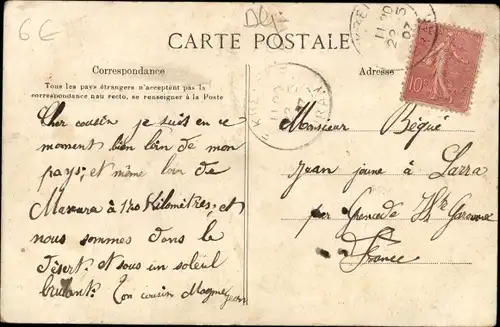 6€
CARTE POSTALE
Correspondance
Tous les pays étrangers n'acceptent pas la
correspondance au recto, se renseigner à la Poste
Adresse
10
Cher cousin je suis en ce
moment bien loin de mon
pays; et même loin de
Mascara à 120 Kilomètres; et
nous sommes dans le
désert et sous un soleil
brulant. Ton cousin
Monsieur Bégué
Jean jeune à Larra
par Grenade Hte Garonne
France